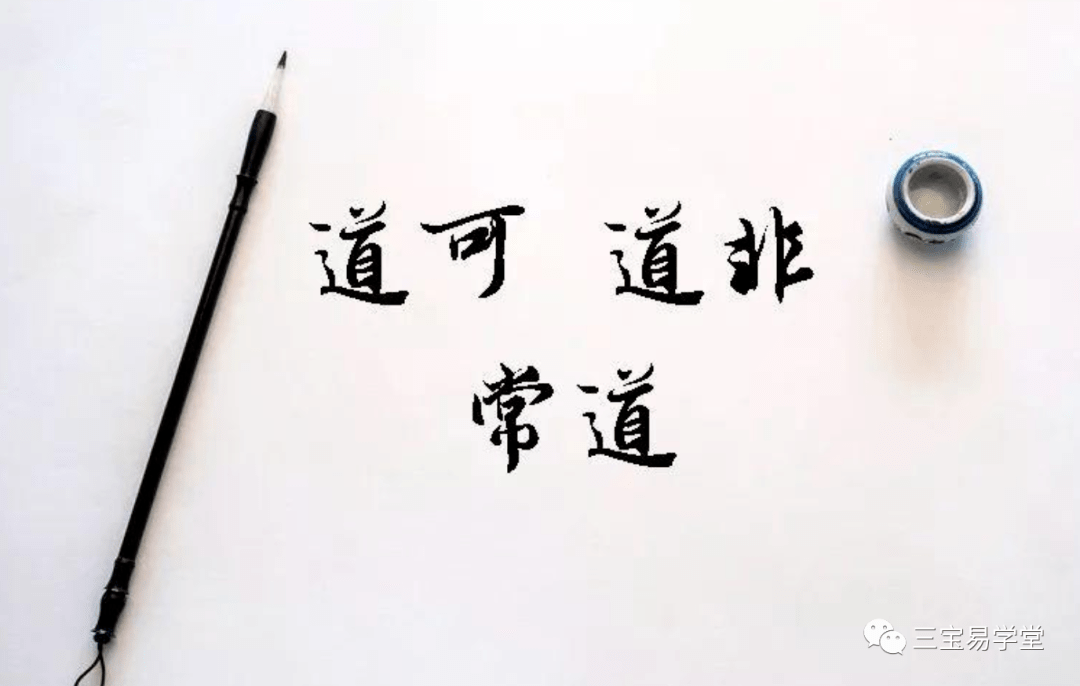 道可 道非
常道
三宝易学堂